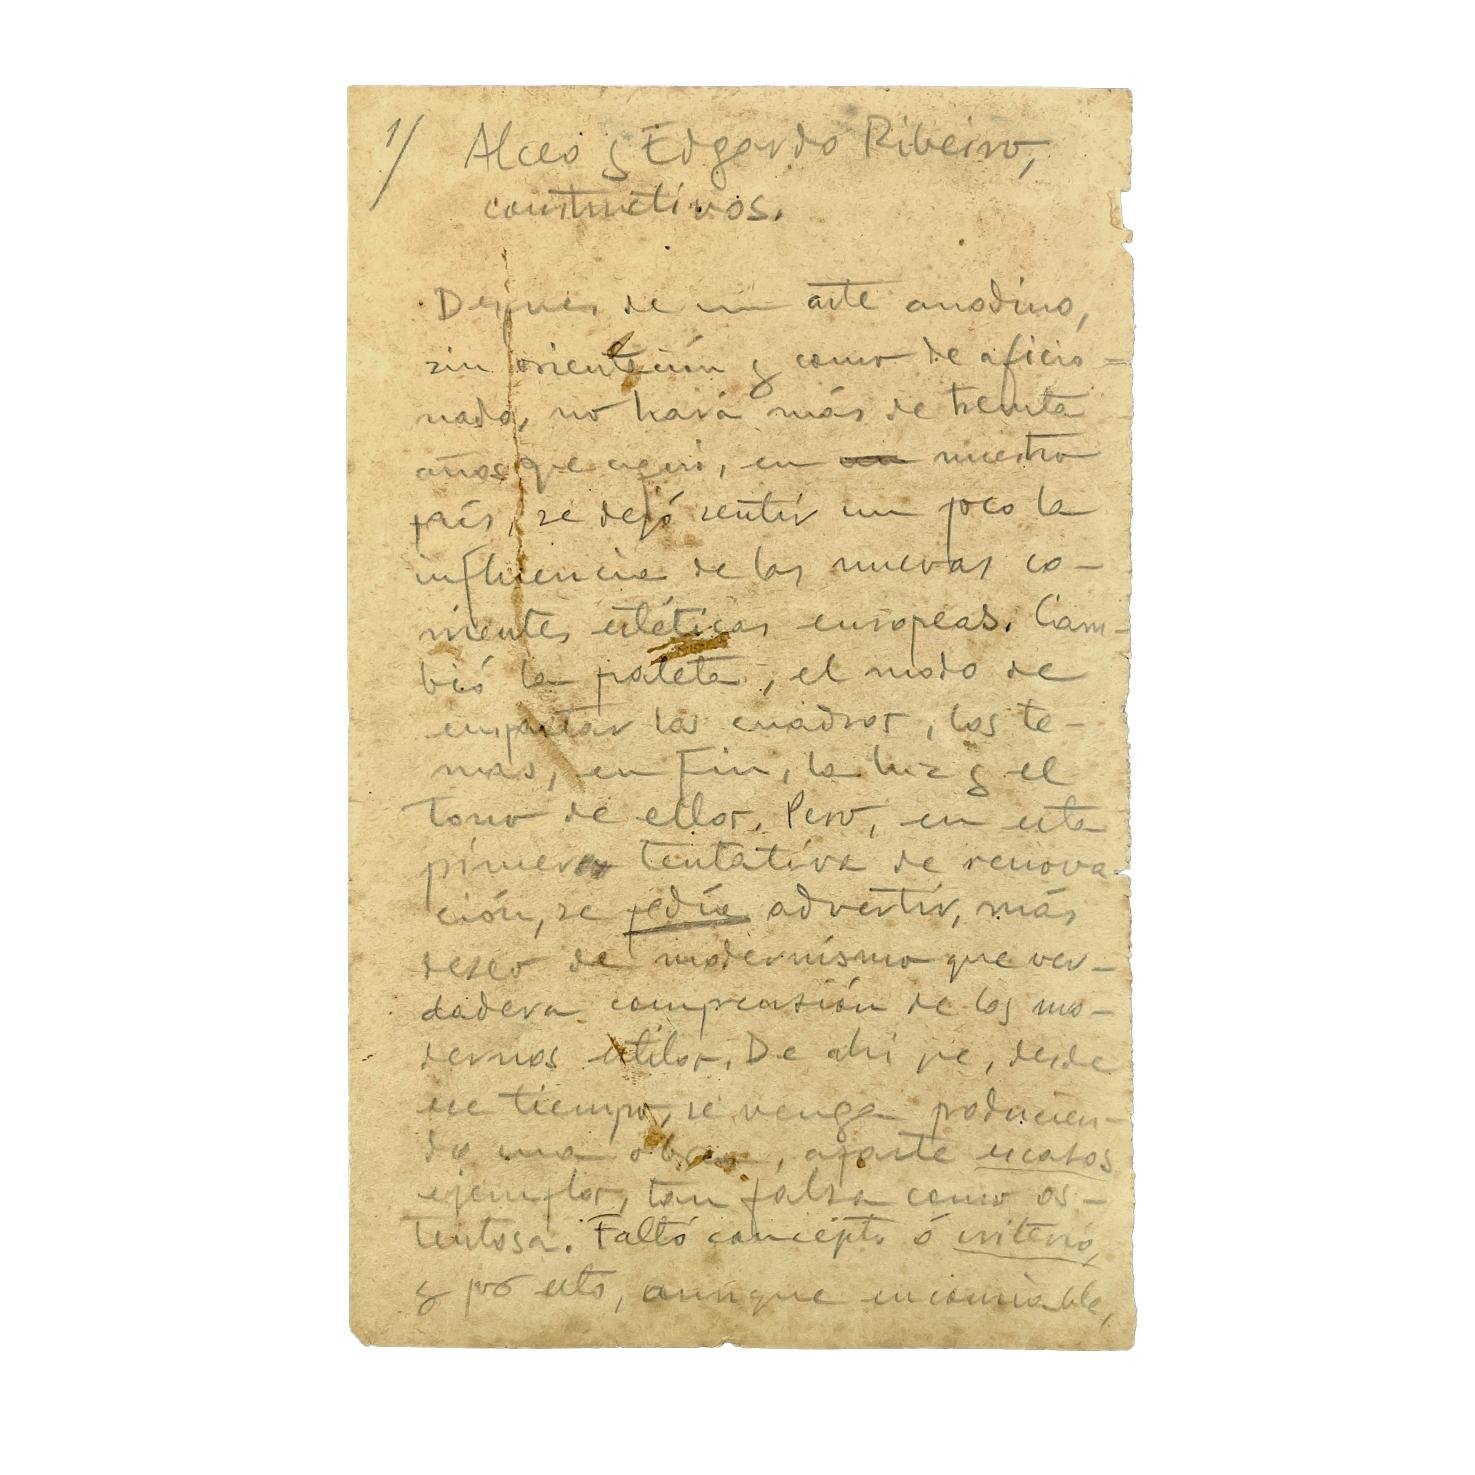 1/ Alceo y Edgardo Ribeiro,
constructivos.
Después de un arte anodino,
sin orientación y como de aficio-
nado, no hará más de treinta
años que aquí, en nuestro
país, se dejó sentir un poco la
influencia de las nuevas co-
rrientes estéticas europeas. Cam-
bió la paleta, el modo de
empastar los cuadros, los te-
mas, en fin, la luz y el
tono de ellos. Pero, en esta
primera tentativa de renova-
ción, se podía advertir, más
deseo de modernismo que ver-
dadera comprensión de los mo-
dernos estilos. De ahí que, desde
ese tiempo, se venga producien-
do una obra, aparte escasos
ejemplos, tan falsa como os-
tentosa. Faltó concepto ó criterio,
y por esto, aunque encomiable,